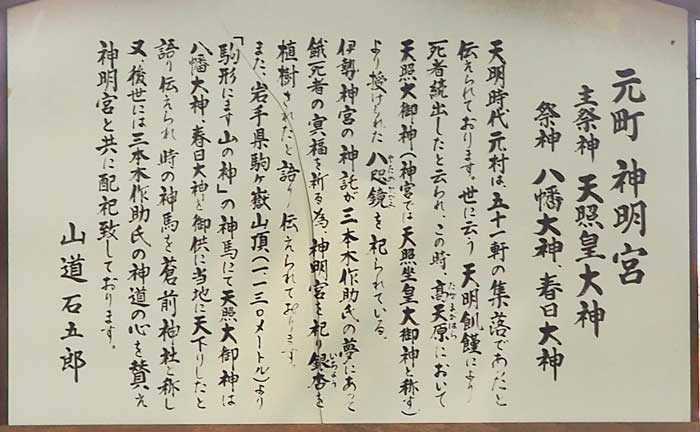 元町 神明宮
主祭神 天照皇大神
祭神 八幡大神、春日大神
天明時代 元村は、五十一軒の集落であったと
伝えられております。世に云う 天明飢饉により
死者続出したと云われ、この時、高天原において
たかまがはら
天照大御神(神宮では 天照坐皇大御神と称す)
より授けられた 八咫鏡を祀られている。
やたのかがみ
伊勢神宮の神託が三本木作助氏の夢にあって
餓死者の冥福を祈る為、神明宮を祀り銀杏を
いちょう
植樹されたと語り伝えられております。
また、岩手県駒ヶ嶽山頂(一一三〇メートル)より
「駒形にます山の神」の神馬にて天照大御神は
八幡大神、春日大神を御供に当地に天下りしたと
語り伝えられ 時の神馬を蒼前神社と称し
又 後世には三本木作助氏の神道の心を賛え
神明宮と共に配祀致しております。
山道石五郎